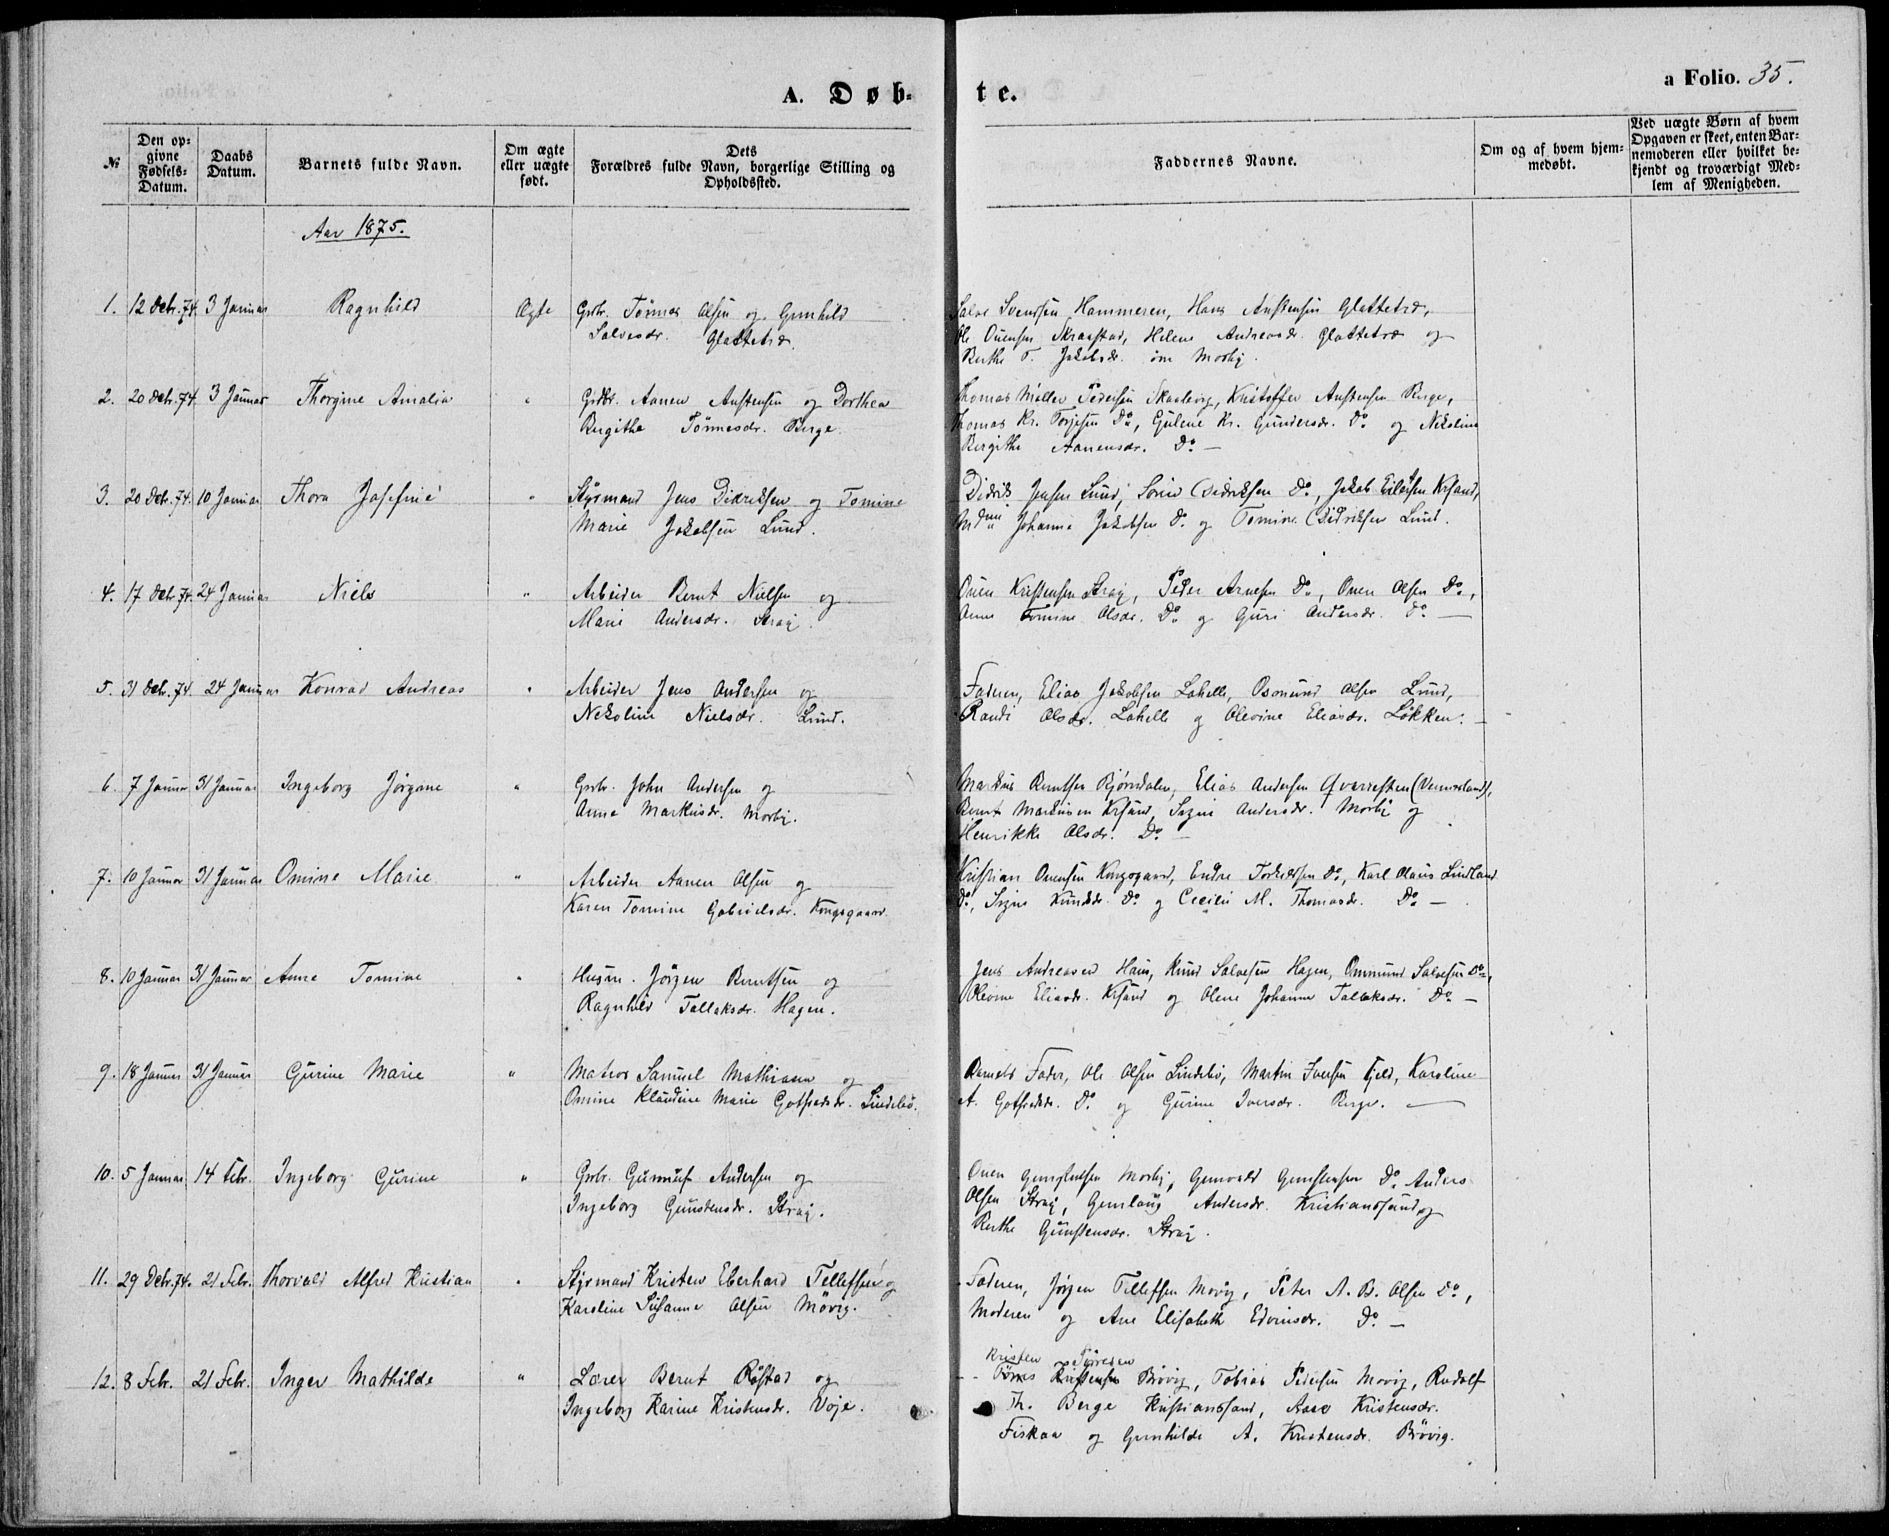 A. Døb-
te.
a Folio. 35.
№
Den op-
givne
Fødsels-
Datum.
Daabs
Datum.
Barnets fulde Navn.
Om ægte
eller uægte
født.
Dets
Forældres fulde Navn, borgerlige Stilling og
Opholdssted.
Faddernes Navne.
Om og af hvem hjem-
medøbt.
Ved uægte Børn af hvem
Opgaven er skeet, enten Bar-
nemoderen eller hvilket be-
kjendt og troværdigt Med-
lem af Menigheden.
Aar 1875.
1. 12 Decbr. 74. 3 Januar Ragnhild Ægte Grbr. Tönnes Olsen og Gunhild
Salvesdr. Glattetræ.
Salve Svensen Hammeren, Hans Anstensen Glattetræ,
Ole Ouensen Skraastad, Helene Andreasdr. Glattetræ og
Berthe T. Jakobsdr. Mosby.
2. 20 Decbr. 74 3 Januar Thorgine Amalia " Grdbr. Aanen Anstensen og Dorthea
Birgithe Tönnesdr. Berge.
Thomas Möller Pedersen Skaaleviq, Kristoffer Anstensen Berge,
Thomas Kr. Torjesen Do, Gulene Kr. Gundersdr. Do og Nikoline
Bergithe Aanensdr. Do —
3. 20 Decbr. 74. 10 Januar Thora Josefine " Styrmand Jens Didriksen og Tomine
Marie Jakobsen Lund.
Didrik Jensen Lund, Sörine Didriksen Do, Jakob Eilertsen Krsand,
Johanne Jakobsen Do. og Tomine Didriksen Lund.
4. 17 Decbr. 74. 24 Januar Niels " Arbeider Bernt Nielsen og
Marie Andersdr. Straj.
Ouen Kristensen Straj, Peder Arnesen Do, Ouen Olsen Do,
Anne Tomine Olsdr. Do og Guri Andersdr. Do —
5. 31 Decbr. 74. 24 Januar Konrad Andreas " Arbeider Jens Andersen og
Nikoline Nielsdr. Lund.
Faderen, Elias Jakobsen Lahelle, Osmund Olsen Lund,
Randi Olsdr. Lahelle og Olevine Eliasdr. Lökken. —
6. 7 Januar 31 Januar Ingeborg Jörgane " Grbr. John Andersen og
Anne Markusdr. Mosby.
Markus Berntsen Bjørndalen, Elias Andersen Qvarresten (Vennesland),
Bernt Markusen Krsand, Signe Andersdr. Mosby og
Henrikke Olsdr. Do —
7. 10 Januar 31 Januar Omine Marie " Arbeider Aanen Olsen og
Karen Tomine Gabrielsdr. Kongsgaard.
Kristian Ouensen Kongsgaard, Endre Torkildsen Do, Karl Olaus Lindland
Do, Signe Knudsdr. Do og Cecilie M. Thomasdr. Do —
8. 10 Januar 31 Januar Anne Tomine " Husm. Jörgen Berntsen og
Ragnhild Tallaksdr. Hagen.
Jens Andreasen Ham, Knud Salvesen Hagen, Ommund Salvesen Do,
Olevine Eliasdr. Krsand og Olene Johanne Tallaksdr. Do —
9. 18 Januar 31 Januar Gurine Marie " Matros Samuel Mathiasen og
Omine Klaudine Marie Gotfredsdr. Lindebö.
Barnets Fader, Ole Olsen Lindebö, Martin Iversen Fjeld, Karoline
A. Gotfredsdr. Do. og Gurine Iversdr. Berge. —
10. 5 Januar 14 Febr. Ingeborg Gurine " Grbr. Gunnuf Andersen og
Ingeborg Gunstensdr. Straj.
Ouen Gunstensen Mosby, Gunvald Gunstensen Do. Anders
Olsen Straj, Gunlaug Andersdr. Kristianssand og
Berthe Gunstensdr. Straj.
11. 29 Decbr. 74. 21 Febr. Thorvald Alfred Kristian " Styrmand Kristen Eberhard Tellefsen og
Karoline Susanne Olsen Mövig.
Faderen, Jörgen Tellefsen Mövig, Peter A. B. Olsen Do,
Moderen og Ane Elisabeth Edvinsdr. Do. —
12. 8 Febr. 21 Febr. Inger Mathilde " Lærer Bernt Röstad og
Ingeborg Karine Kristensdr. Voje.
Kristen
Kristensen Brövig, Tobias Pedersen Movig, Rudolf
Th. Berge Kristianssand, Aase Kristensdr.
Fiskaa og Gunhilde A. Kristensdr. Brövig.